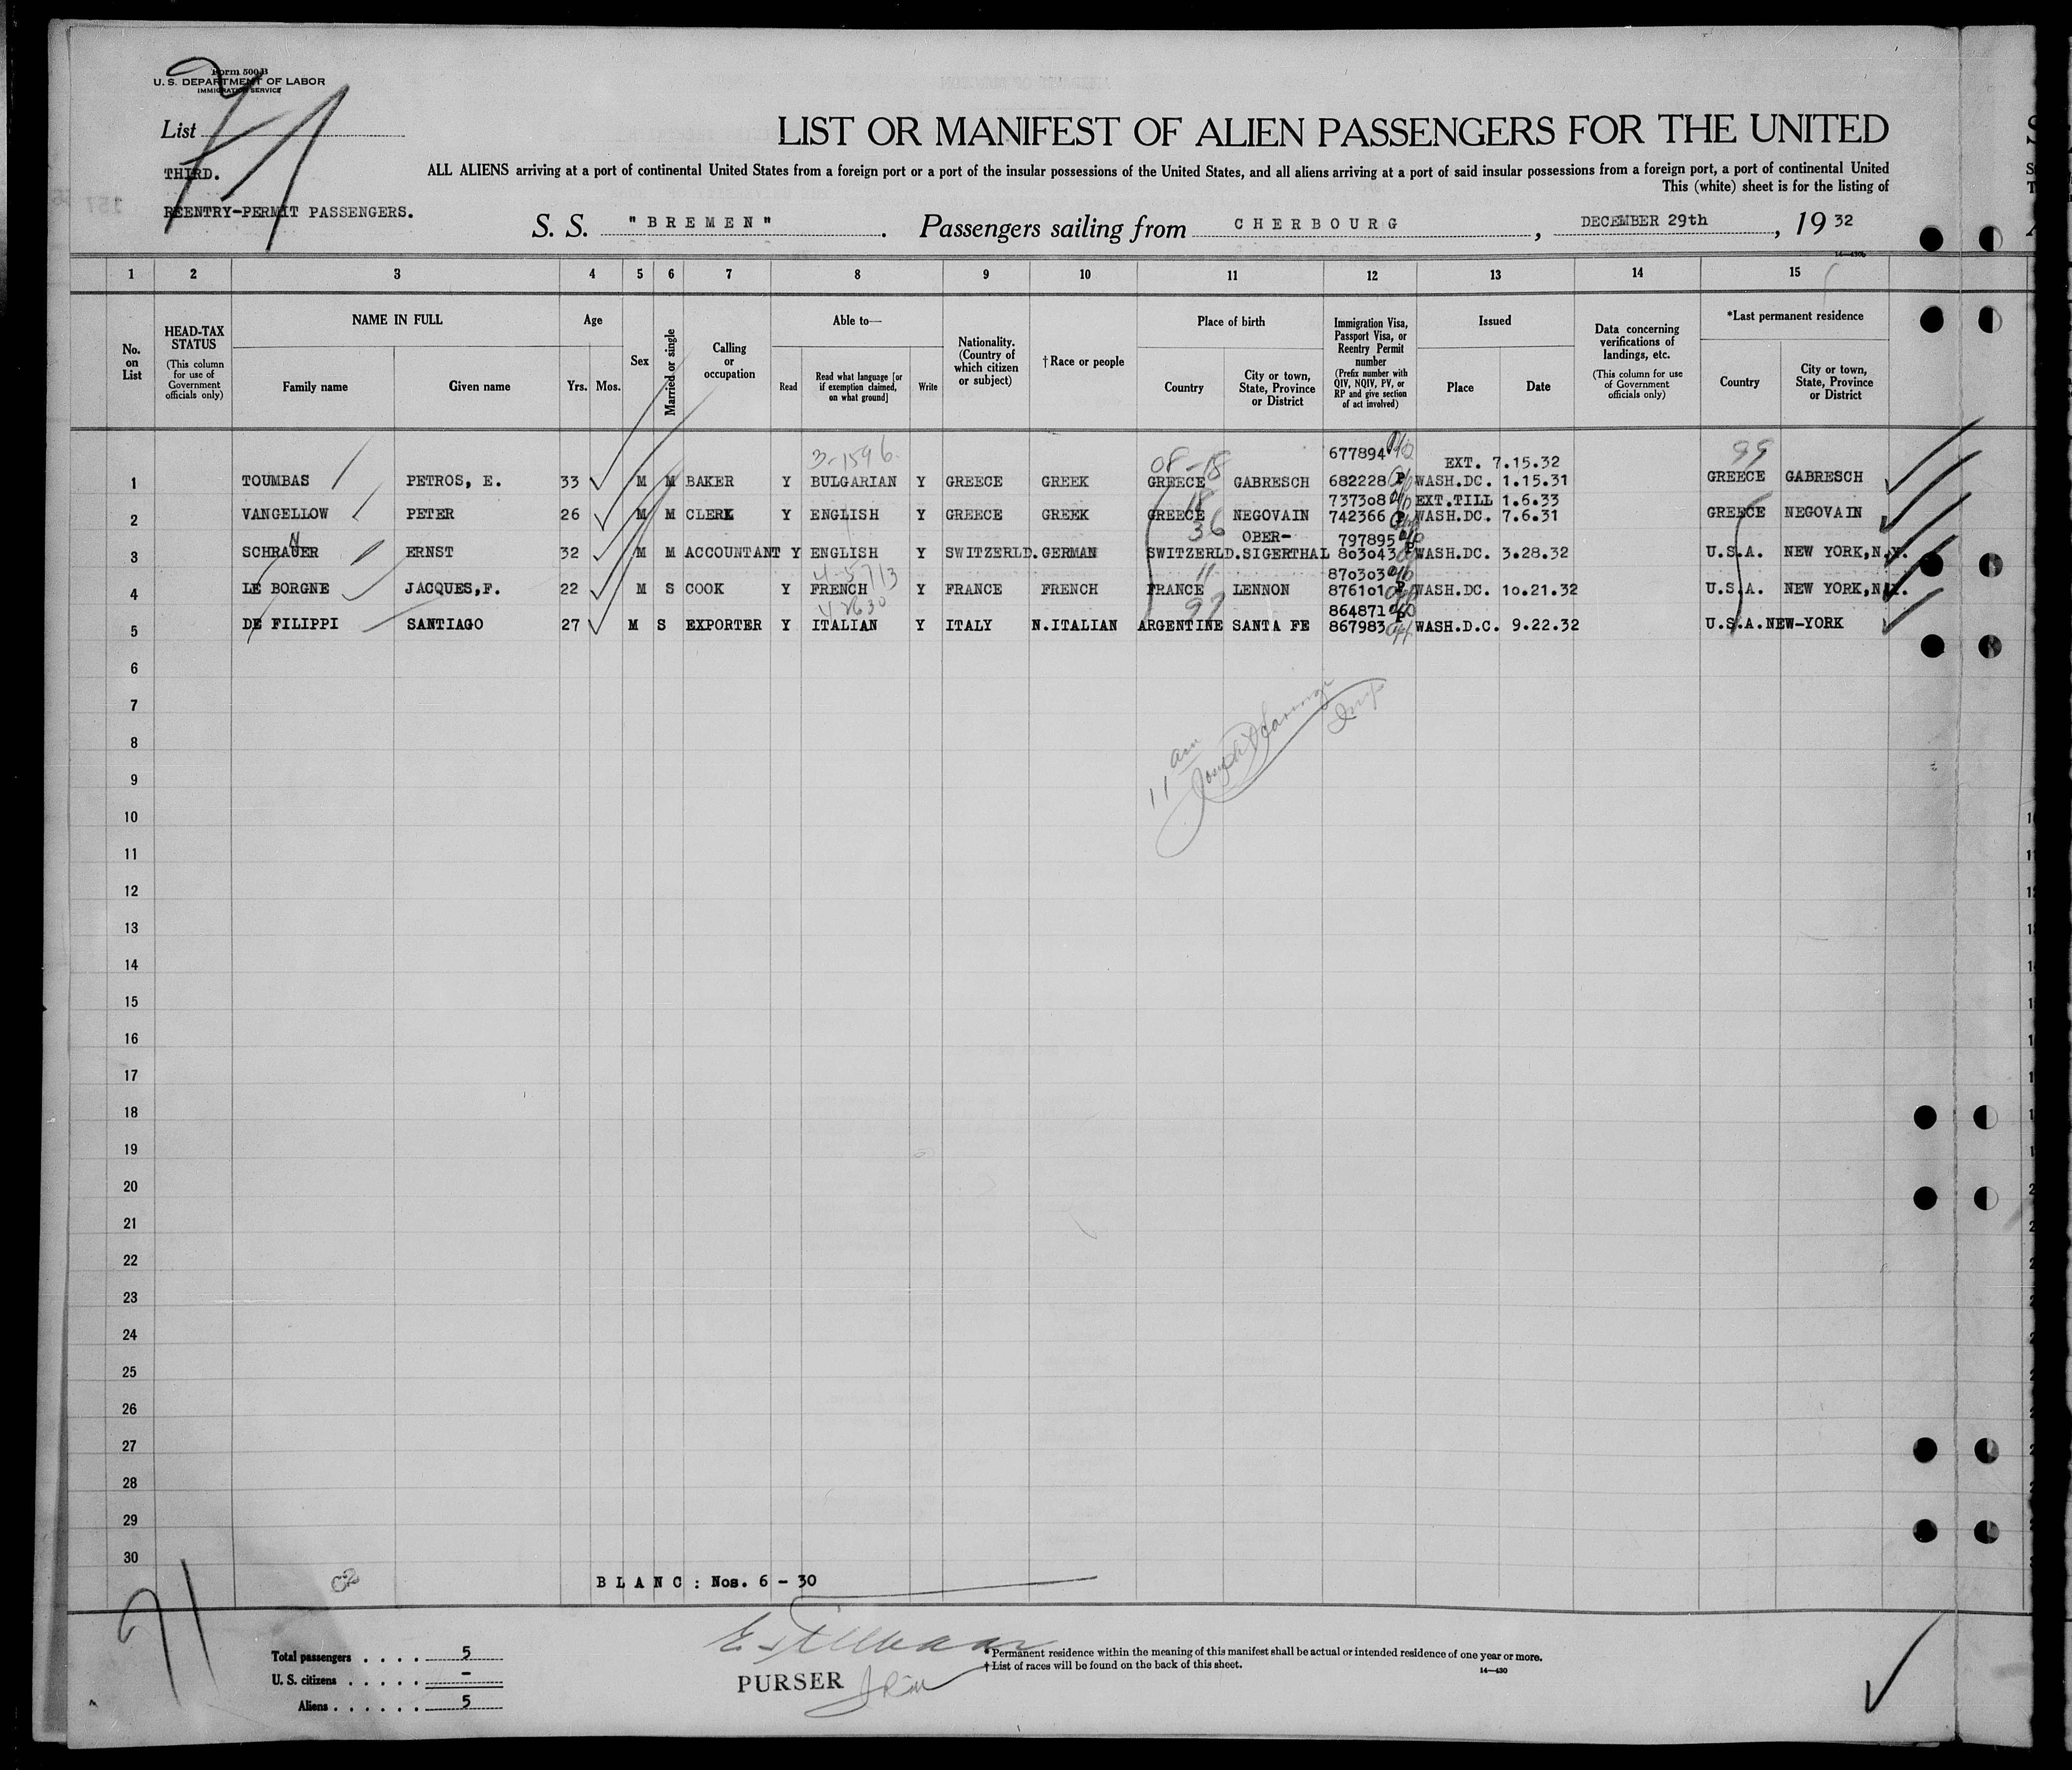 Form 500 B
U. S. DEPARTMENT OF LABOR
IMMIGRATION SERVICE
List
THIRD.
REENTRY-PERMIT PASSENGERS.
LIST OR MANIFEST OF ALIEN PASSENGERS FOR THE UNITED
ALL ALIENS arriving at a port of continental United States from a foreign port or a port of the insular possessions of the United States, and all aliens arriving at a port of said insular possessions from a foreign port, a port of continental United
This (white) sheet is for the listing of
S. S. "BREMEN". Passengers sailing from CHERBOURG, DECEMBER 29th, 19 32
14—430b
1 2 3 4 5 6 7 8 9 10 11 12 13 14 15
No. on List
HEAD-TAX STATUS (This column for use of Government officials only)
NAME IN FULL Family name Given name
Age Yrs. Mos.
Sex
Married or single
Calling or occupation
Able to— Read Read what language [or if exemption claimed, on what ground] Write
Nationality. (Country of which citizen or subject)
† Race or people
Place of birth Country City or town, State, Province or District
Immigration Visa, Passport Visa, or Reentry Permit number (Prefix number with QIV, NQIV, PV, or RP and give section of act involved)
Issued Place Date
Data concerning verifications of landings, etc. (This column for use of Government officials only)
*Last permanent residence Country City or town, State, Province or District
3-1596 08-18 677894 EXT. 7.15.32 99
1 TOUMBAS PETROS, E. 33 M M BAKER Y BULGARIAN Y GREECE GREEK GREECE GABRESCH 682228 P WASH.DC. 1.15.31 GREECE GABRESCH
18 737308 EXT.TILL 1.6.33
2 VANGELLOW PETER 26 M M CLERK Y ENGLISH Y GREECE GREEK GREECE NEGOVAIN 742366 P WASH.DC. 7.6.31 GREECE NEGOVAIN
36 OBER- 797895
3 SCHRAUER ERNST 32 M M ACCOUNTANT Y ENGLISH Y SWITZERLD. GERMAN SWITZERLD. SIGERTHAL 803043 P WASH.DC. 3.28.32 U.S.A. NEW YORK,N.Y.
4-5713 11 870303
4 LE BORGNE JACQUES,F. 22 M S COOK Y FRENCH Y FRANCE FRENCH FRANCE LENNON 876101 P WASH.DC. 10.21.32 U.S.A. NEW YORK,N.Y.
97 864871
5 DE FILIPPI SANTIAGO 27 M S EXPORTER Y ITALIAN Y ITALY N.ITALIAN ARGENTINE SANTA FE 867983 P WASH.D.C. 9.22.32 U.S.A. NEW-YORK
6
7
8
9
10
11
12
13
14
15
16
17
18
19
20
21
22
23
24
25
26
27
28
29
30
11 am
BLANC: Nos. 6 - 30
71
Total passengers . . . . 5
U. S. citizens . . . . . -
Aliens . . . . . . 5
PURSER
* Permanent residence within the meaning of this manifest shall be actual or intended residence of one year or more.
† List of races will be found on the back of this sheet.
14—430